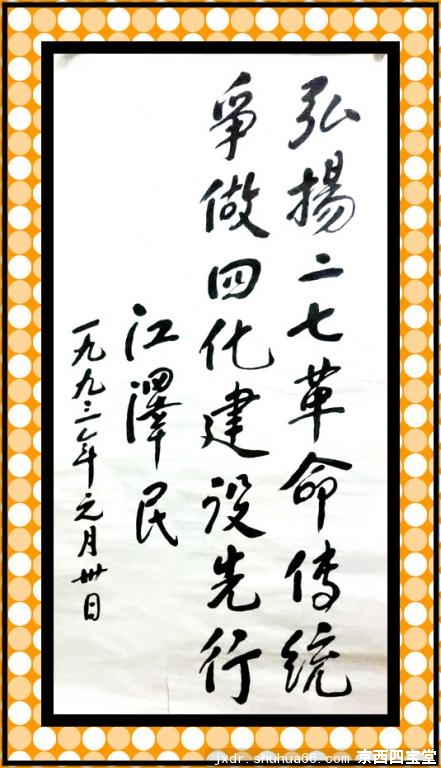 弘揚二七革命传統
爭做四化建设先行
江澤民
一九九三年元月卅日
jxdr.shuhua66.com 京西四宝堂